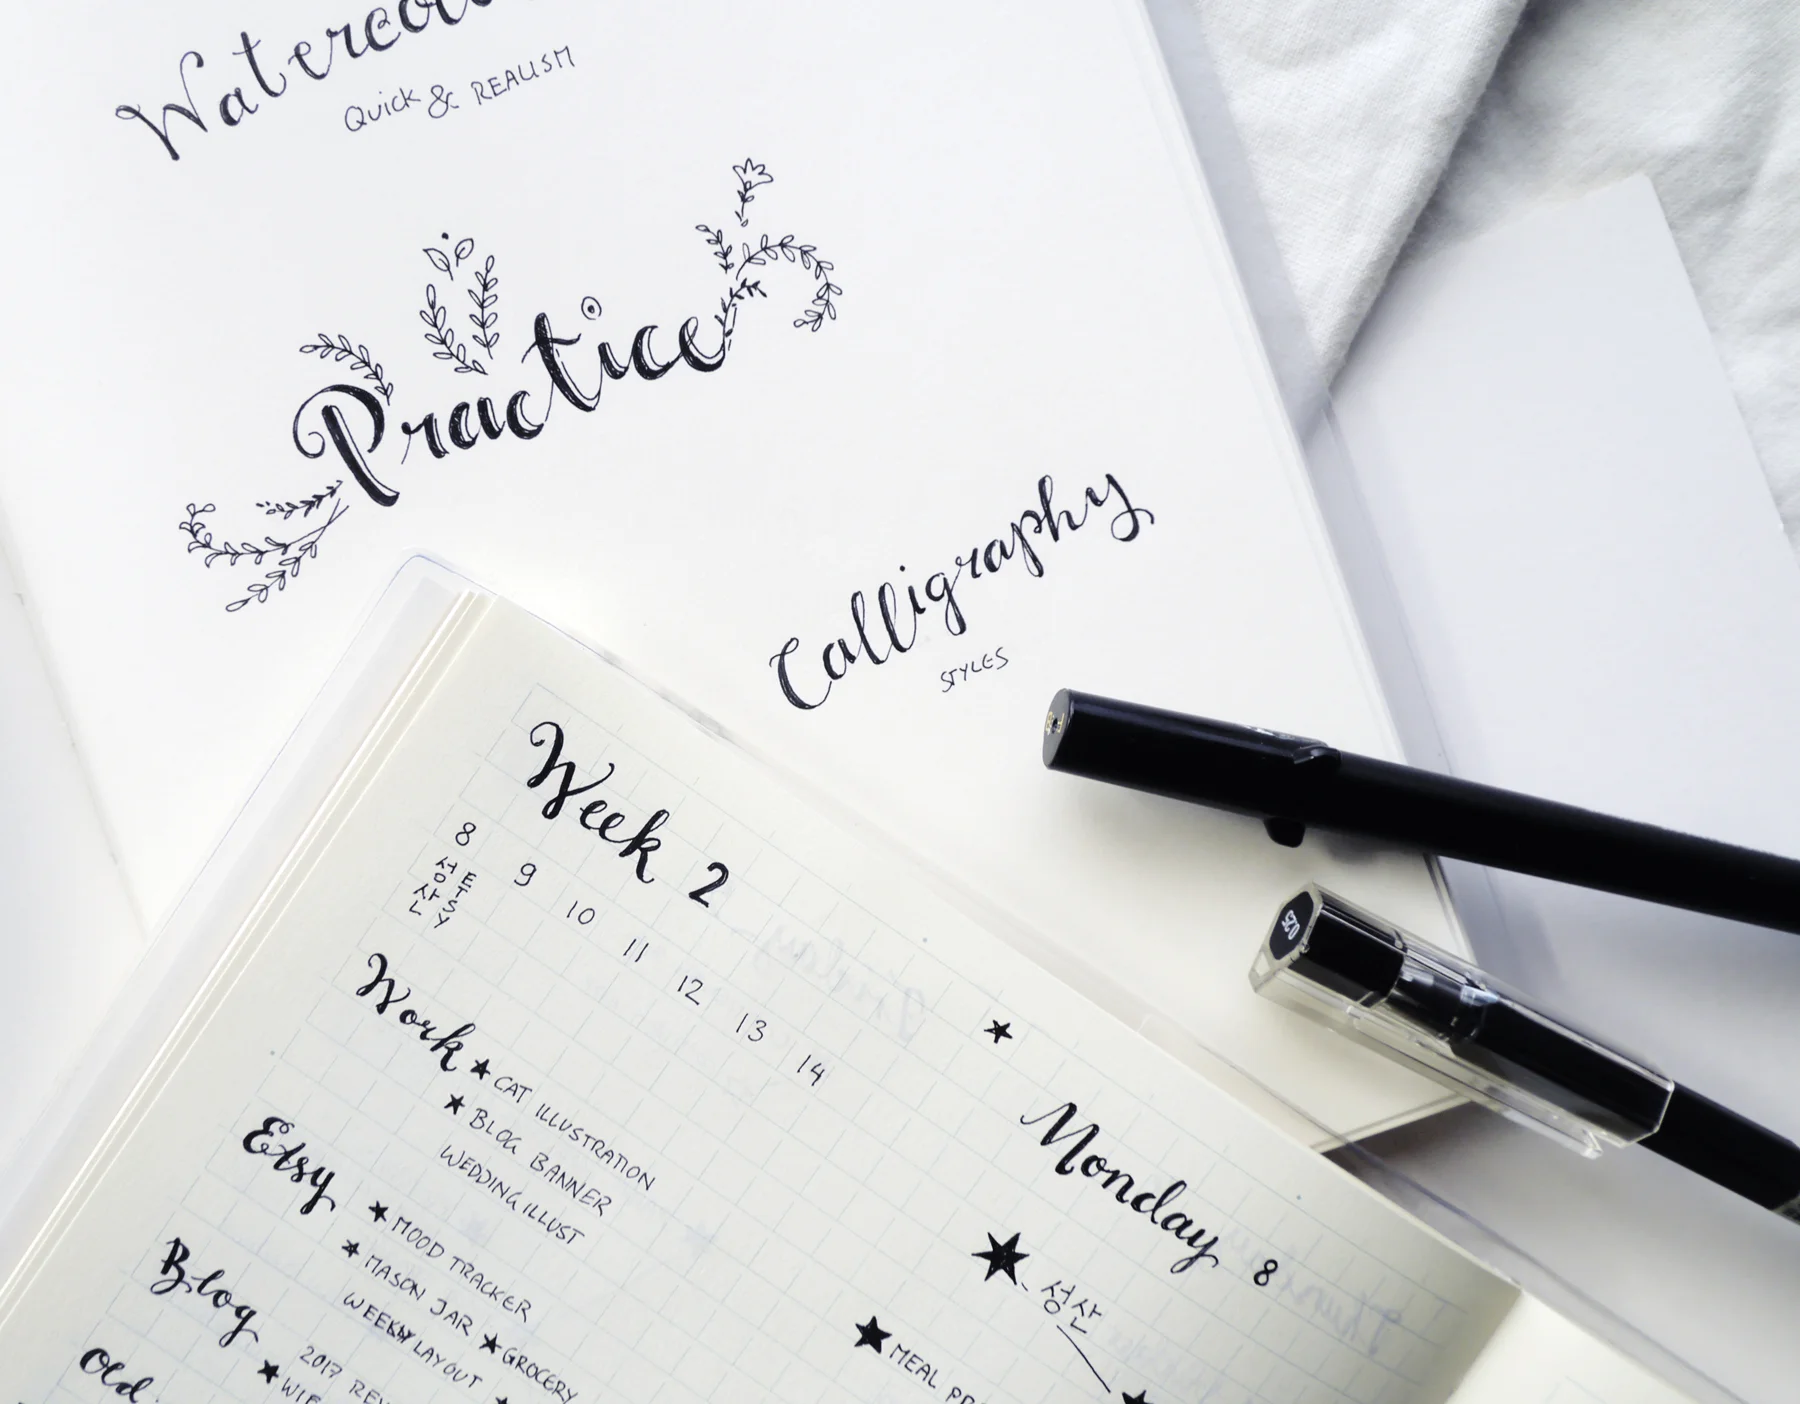 Quick & REALISM
Practice
Calligraphy
STYLES
Week 2
8 9 10 11 12 13 14
성산 ETSY
Work
★ CAT ILLUSTRATION
★ BLOG BANNER
WEDDING ILLUST
Etsy
★ MOOD TRACKER
★ MASON JAR
★ GROCERY
WEEKLY LAYOUT
Blog
2017
★
Old
★
Monday 8
★ - 성산
★ MEAL
0.25